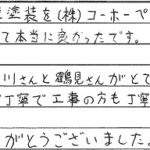 塗装を(株)コーホーペ
て本当に良かったです。
川さんと鶴見さんがとて
丁寧で工事の方も丁寧
がとうございました。